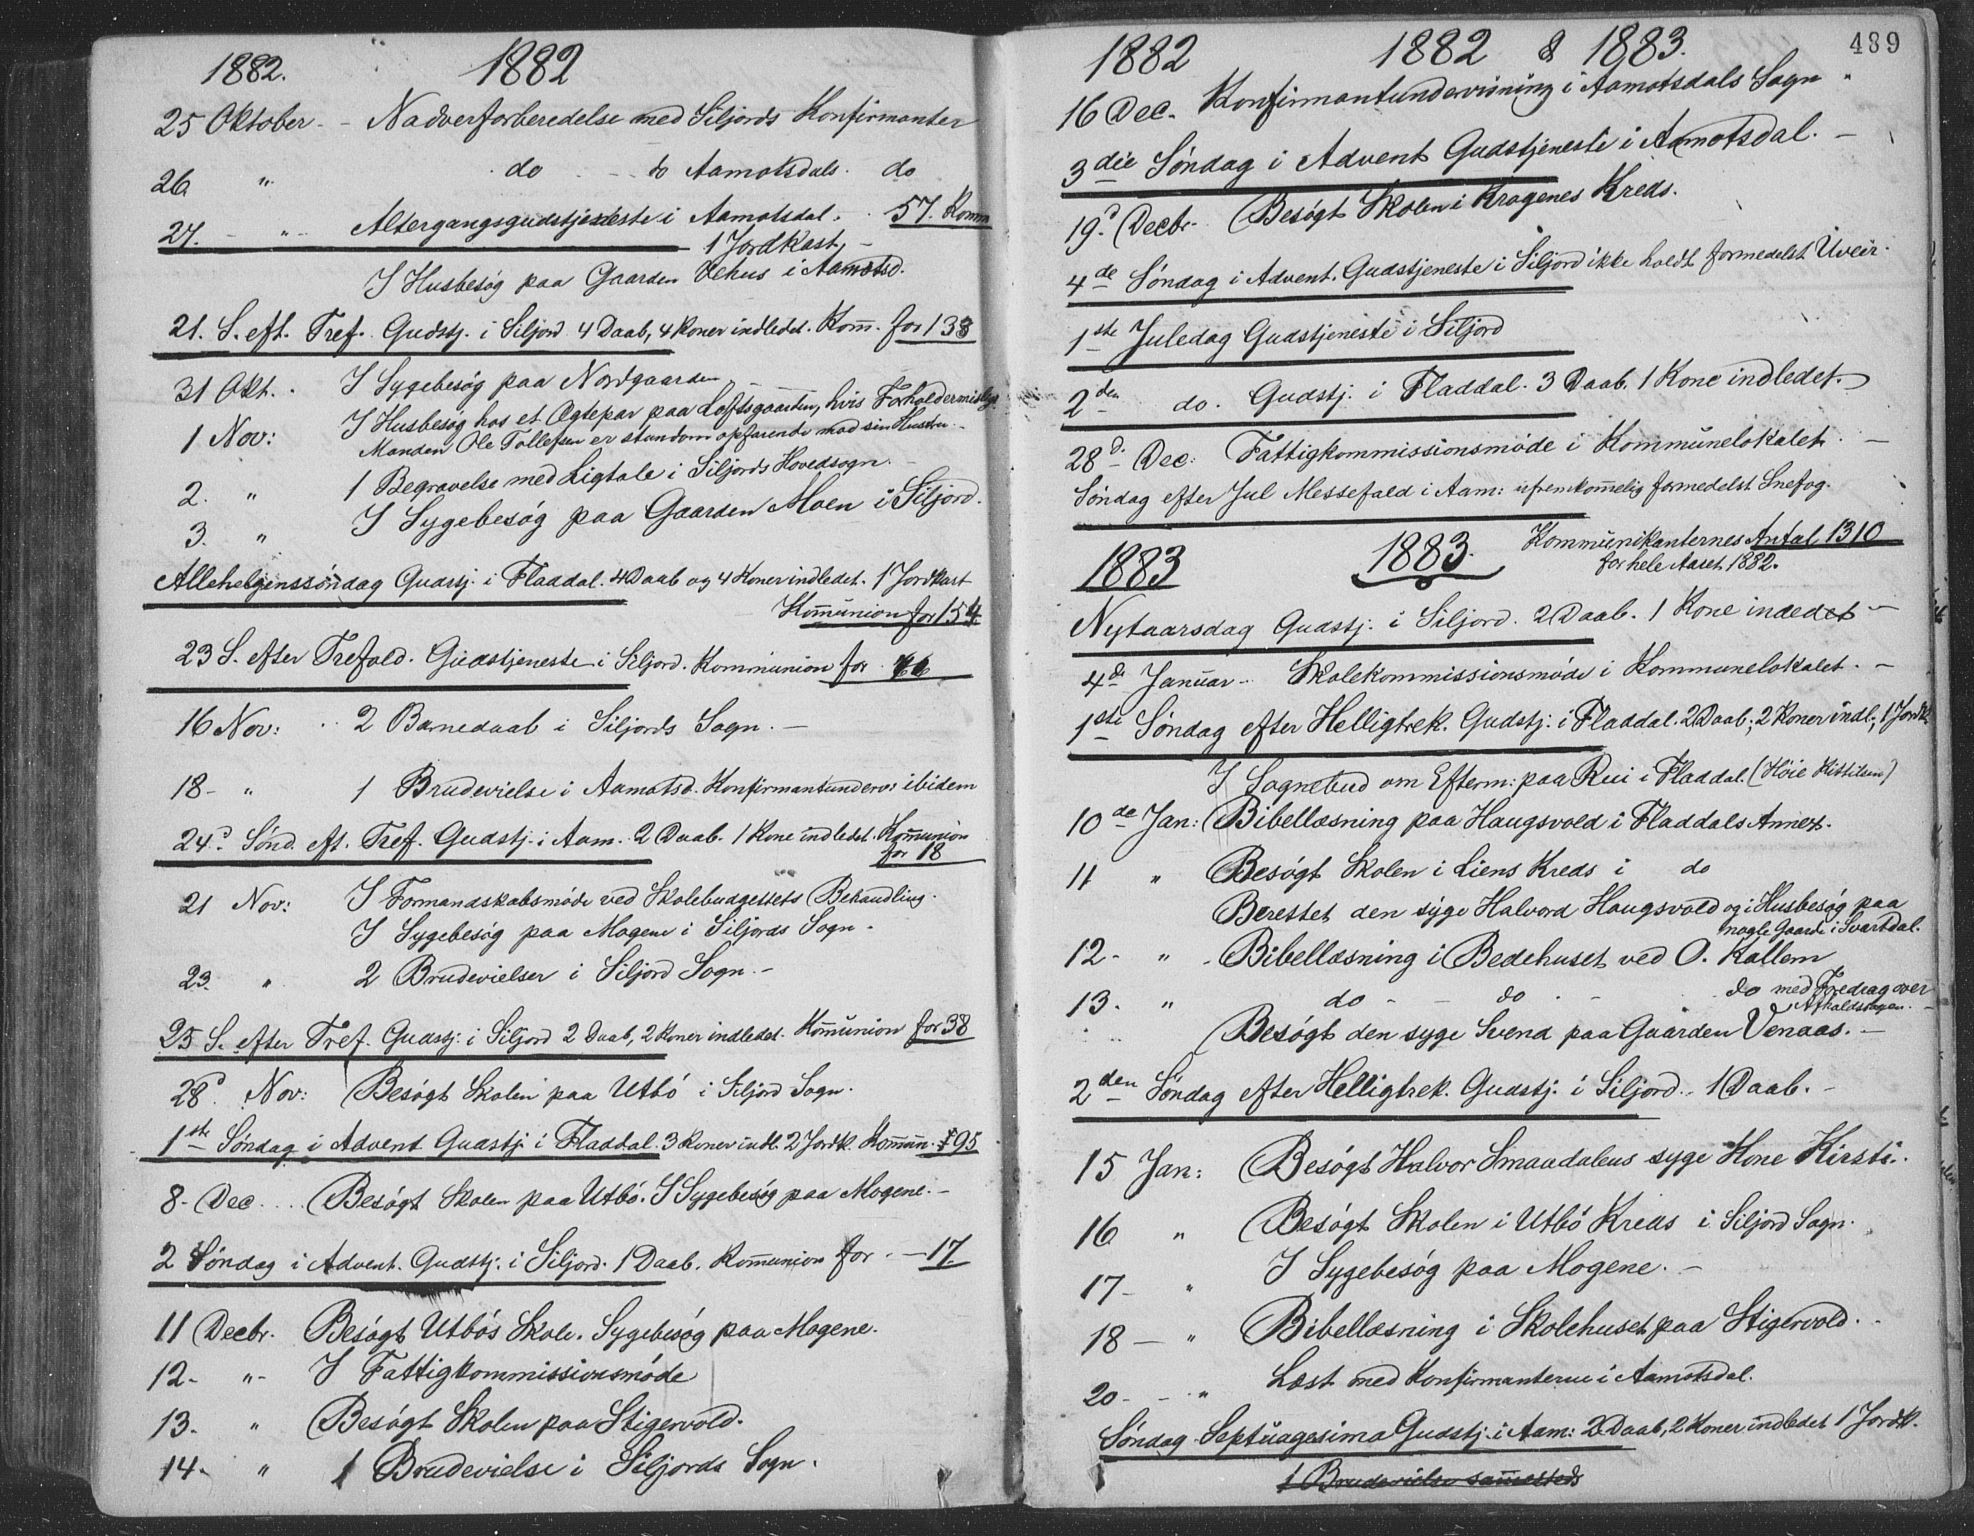 1882. 1882
25 Oktober - - Nadverforberedelse med Siljords Konfirmanter
26 " do do Aamotsdals do
27. - " - Altergangsgudstjeneste i Aamotsdal. 57. Komm
1 Jordkast, -
I Husbesøg paa Gaarden Vehus i Aamotsd.
21. S. eft. Tref. Gudstj. i Siljord 4 Daab, 4 Koner indledet. Kom̅. for 138
31 Okt. . I Sygebesøg paa Nordgaarden
1 Nov: I Husbesøg hos et Ægtepar paa Loftsgaarden, hvis Forhold er misligt
Manden Ole Tollefsen er stundom opfarende mod sin Hustru. -
2. " 1 Begravelse med Ligtale i Siljords Hovedsogn. -
3. " I Sygebesøg paa Gaarden Moen i Siljord.
Allehelgenssøndag Gudstj. i Fladdal. 4 Daab og 4 Koner indledet. 1 Jordkast
Kom̅union for 154
23 S. efter Trefold. Gudstjeneste i Siljord. Kommunion for 66
16 Nov: . . 2 Barnedaab i Siljords Sogn. -
18 - " 1 Brudevielse i Aamotsd. Konfirmantunderv: ibidem
24d Sønd. eft. Tref. Gudstj. i Aam. 2 Daab. 1 Kone indledet. Kom̅union
for 18
21 Nov: I Formandskabsmøde ved Skolebudgettets Behandling.
I Sygebesøg paa Mogene i Siljords Sogn.
23. " 2 Brudevielser i Siljord Sogn. -
25 S. efter Tref. Gudstj: i Siljord 2 Daab, 2 Koner indledet. Kom̅union for 38
28d. Nov: Besøgt Skolen paa Utbö i Siljord Sogn.
1ste Søndag i Advent Gudstj i Fladdal. 3 Koner indl. 2 Jordk. Kom̅un. f 95
8 - Dec . . . . Besøgt Skolen paa Utbö. I Sygebesøg paa Mogene. -
2 Søndag i Advent. Gudstj. i Siljord. 1 Daab. Kom̅union for . - 17.
11 Decbr. Besøgt Utbös Skole. Sygebesøg paa Mogene.
12. " - I Fattigkommissionsmøde
13. " Besøgt Skolen paa Stigervold.
14. " 1 Brudevielse i Siljords Sogn.
489
1882 1882 & 1883.
16 Dec. Konfirmantundervisning i Aamotsdals Sogn "
3die Søndag i Advent Gudstjeneste i Aamotsdal. -
19d. Decbr. Besøgt Skolen i Kragenes Kreds.
4de Søndag i Advent. Gudstjeneste i Siljord ikke holdt formedelst Uveir.
1ste Juledag Gudstjeneste i Siljord
2den do. Gudstj. i Fladdal. 3 Daab. 1 Kone indledet.
28d. Dec: Fattigkommissionsmøde i Kommunelokalet. -
Søndag efter Jul Messefald i Aam: ufremkom̅elig formedelst Snefog.
1883 1883. Kommunikanternes Antal 1310
for hele Aaret 1882.
Nytaarsdag Gudstj. i Siljord. 2 Daab. 1 Kone indedet -
4de Januar - Skolekommissionsmøde i Kommunelokalet. -
1ste Søndag efter Helligtrek. Gudstj: i Fladdal. 2 Daab; 2 Koner indl.; 1 Jordk.
I Sognebud om Efterm: paa Rui i Fladdal. (Høie Kittilsen)
10de Jan: Bibellæsning paa Haugsvold i Fladdals Annex.
11 " Besøgt Skolen i Liens Kreds i do
Berettet den syge Halvord Haugsvold og i Husbesøg paa
nogle Gaarde i Svartdal.
12 - " - Bibellæsning i Bedehuset ved O. Kallem
13. " do - - do . - do med Foredrag over
Afholdssagen. -
Besøgt den syge Svend paa Gaarden Venaas. -
2den Søndag efter Helligtrek. Gudstj. i Siljord. . 1 Daab. -
15 Jan: Besøgt Halvor Smaadalens syge Kone Kirsti.
16 " Besøgt Skolen i Utbö Kreds i Siljord Sogn.
17 - " I Sygebesøg paa Mogene. -
18 - " Bibellæsning i Skolehuset paa Stigervold. .
20 - - " Læst med Konfirmanterne i Aamotsdal.
Søndag Septuagesima Gudstj. i Aam: 2 Daab, 2 Koner indledet 1 Jordk.
1 Brudevielse sammesteds